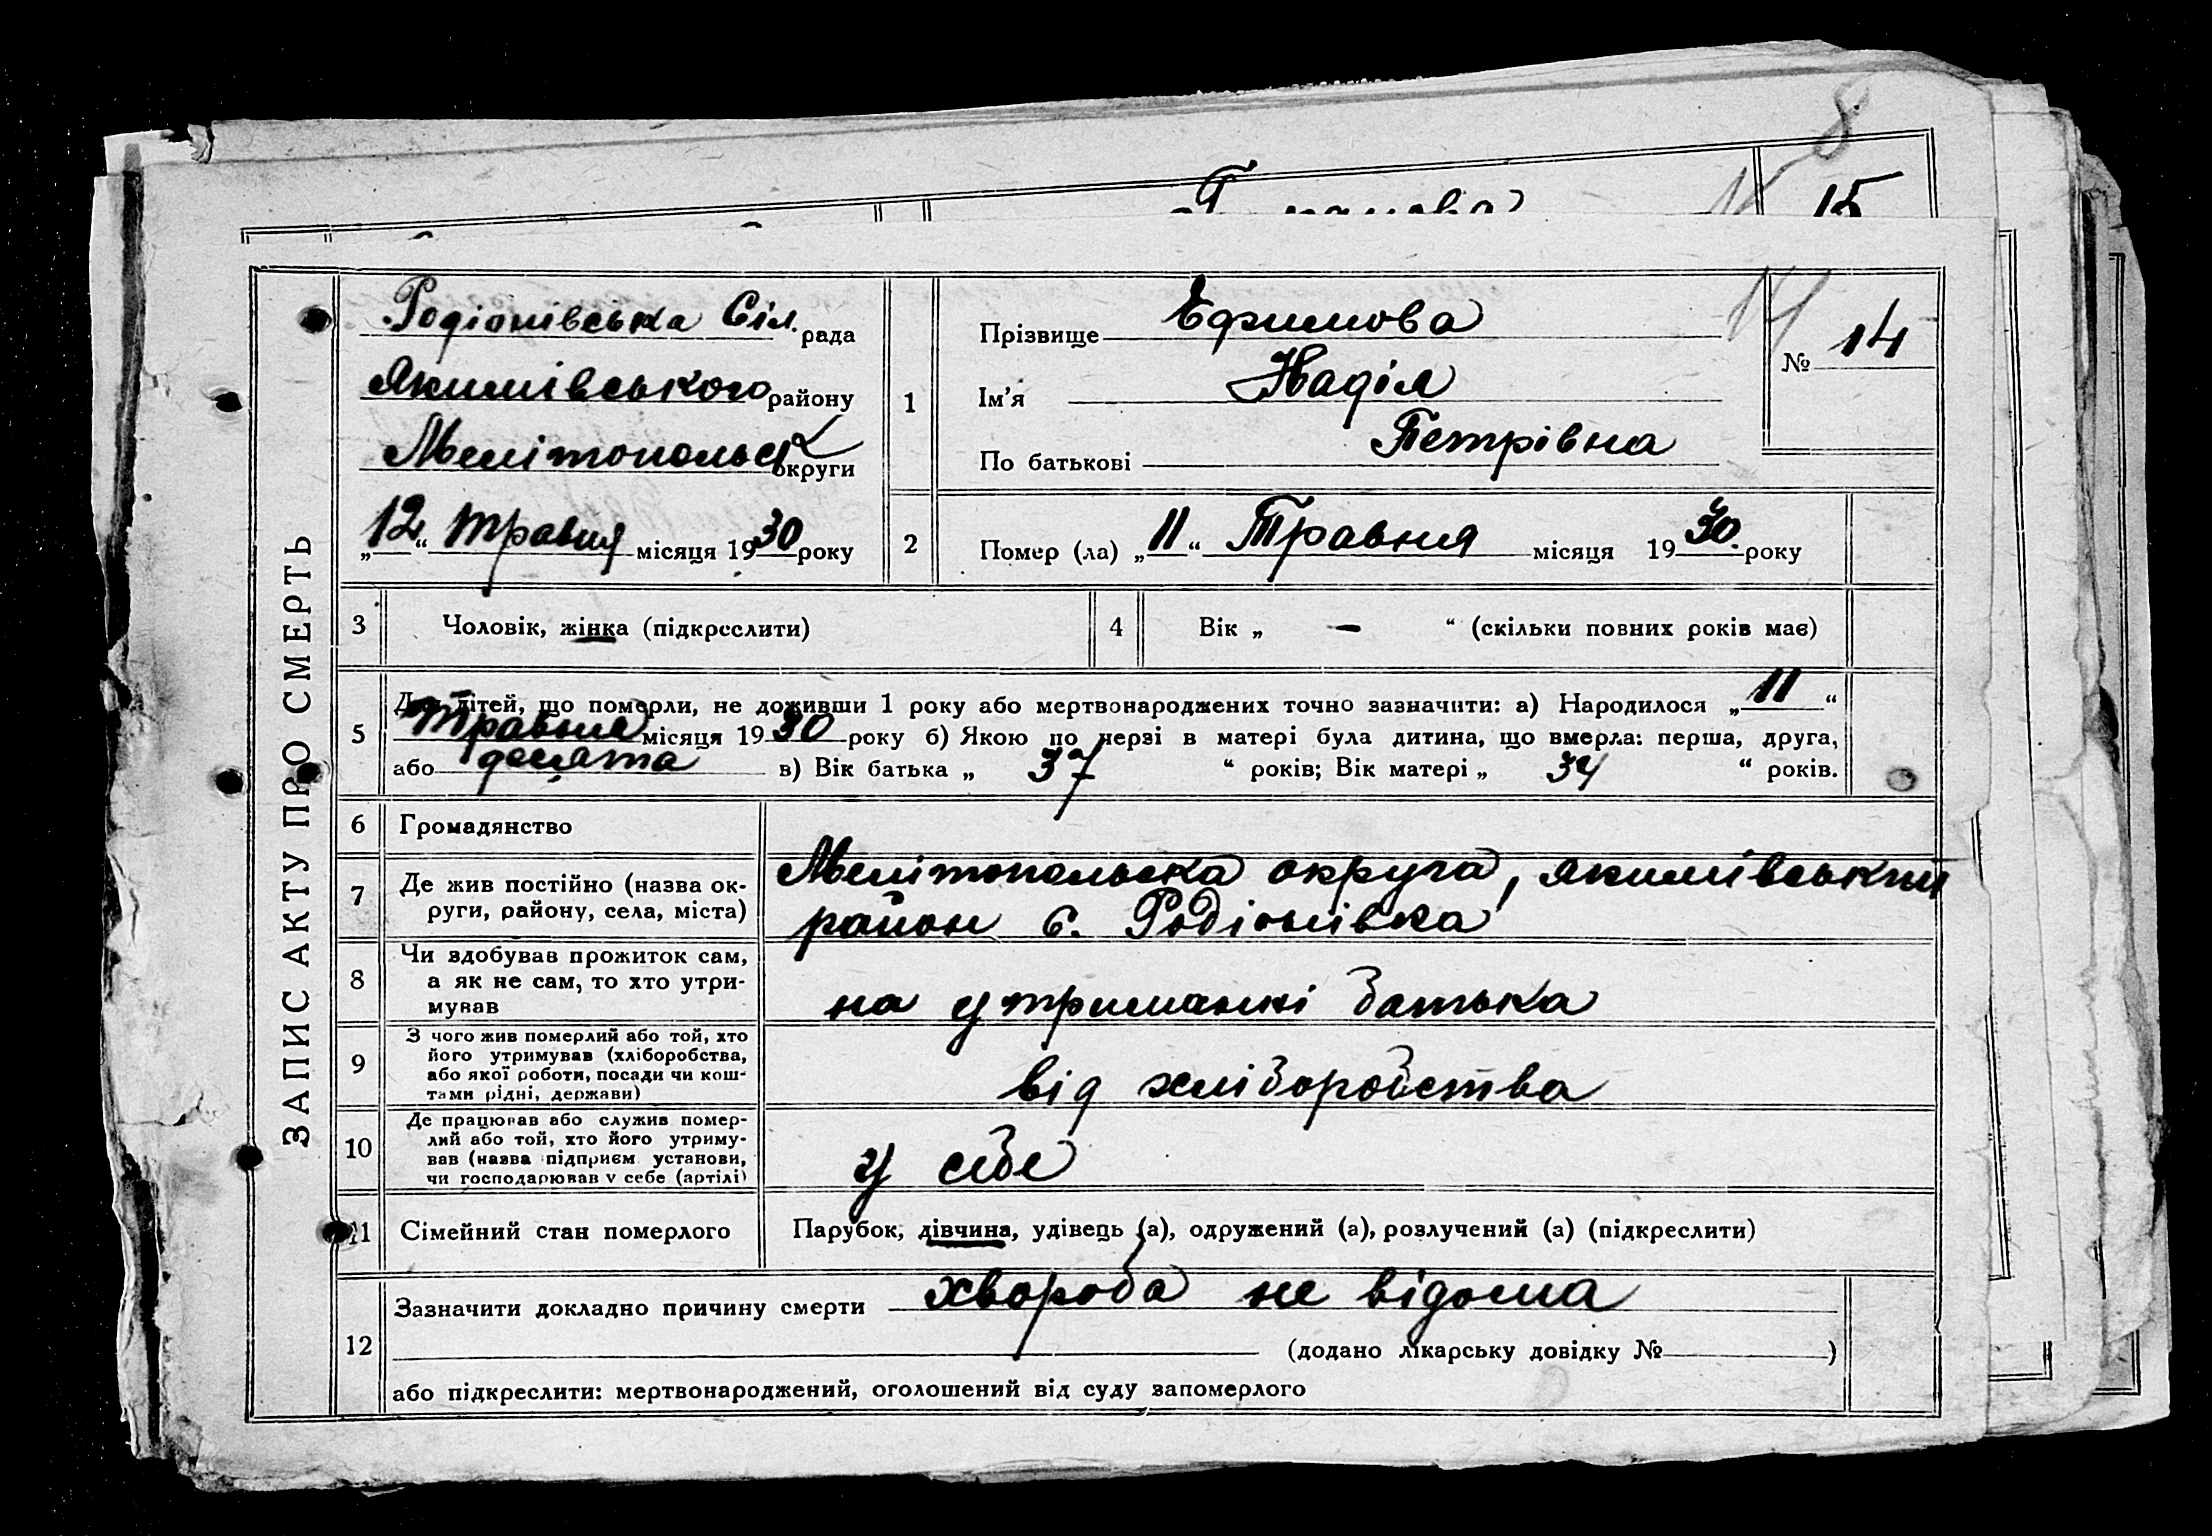 8
15
ЗАПИС АКТУ ПРО СМЕРТЬ
Родіонівська Сіл. рада
Якимівського району
Мелітопольськ округи
„12“ травня місяця 1930 року
1
Прізвище Ефимова
Ім’я Надія
По батькові Петрівна
№ 14
2
Помер (ла) „11“ Травня місяця 1930. року
3
Чоловік, жінка (підкреслити)
4
Вік „ — “ (скільки повних років має)
5
Для дітей, що померли, не доживши 1 року або мертвонароджених точно зазначити: а) Народилося „11“
травня місяця 1930 року б) Якою по черзі в матері була дитина, що вмерла: перша, друга,
або десята в) Вік батька „ 37 “ років; Вік матері „ 34 “ років.
6
Громадянство
7
Де жив постійно (назва ок-
руги, району, села, міста)
Мелітопольська округа, якимівський
район с. Родіонівка
8
Чи здобував прожиток сам,
а як не сам, то хто утри-
мував
на утриманні батька
9
З чого жив померлий або той, хто
його утримував (хліборобства,
або якої роботи, посади чи кош-
тами рідні, держави)
від хліборобства
10
Де працював або служив помер-
лий або той, хто його утриму-
вав (назва підприєм. установи,
чи господарював у себе (артілі)
у себе
11
Сімейний стан померлого
Парубок, дівчина, удівець (а), одружений (а), розлучений (а) (підкреслити)
12
Зазначити докладно причину смерти хвороба не відома
(додано лікарську довідку № )
або підкреслити: мертвонароджений, оголошений від суду запомерлого